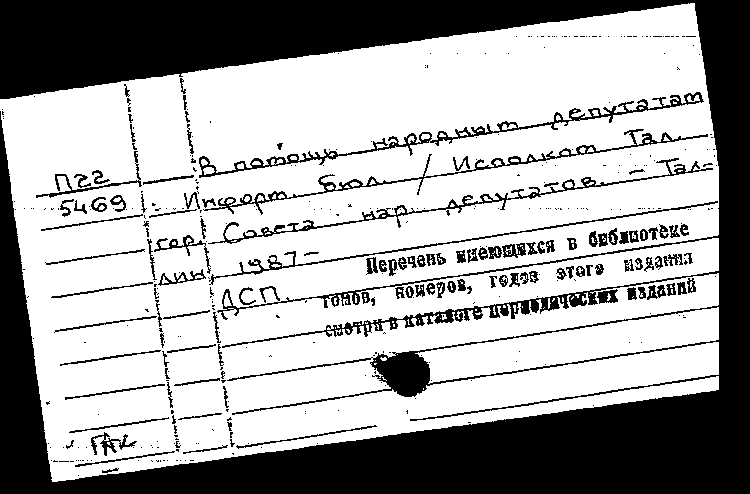 П22 В помощь народным депутатам
5469 : Информ. бюл. / Исполком Тал.
гор. Совета нар. депутатов. – Тал-
лин, 1987–
ДСП.
Перечень имеющихся в библиотеке
томов, номеров, годов этого издания
смотри в каталоге периодических изданий
ГАК